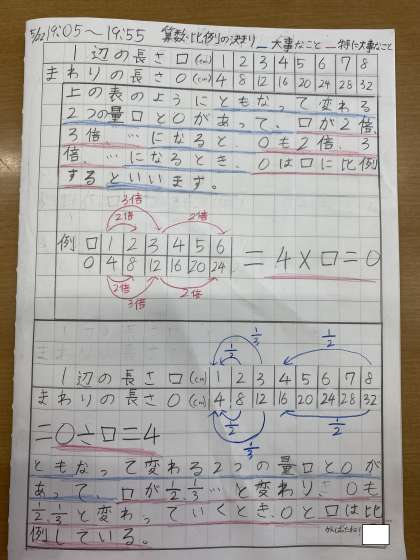 5/22 19:05～19:55 算数・比例の決まり ー大事なこと ー特に大事なこと
1辺の長さ□(cm) 1 2 3 4 5 6 7 8
まわりの長さ○(cm) 4 8 12 16 20 24 28 32
上の表のようにともなって変わる
2つの量□と○があって、□が2倍、
3倍、…になると、○も2倍、3
倍、…になるとき、○は□に比例
するといいます。
3倍
2倍 2倍
例 □ 1 2 3 4 5 6
○ 4 8 12 16 20 24
＝4×□＝○
2倍 2倍
3倍
1/3 1/2
1/2
1辺の長さ□(cm) 1 2 3 4 5 6 7 8
まわりの長さ○(cm) 4 8 12 16 20 24 28 32
1/2 1/2
1/3
＝○÷□＝4
ともなって変わる2つの量□と○が
あって、□が1/2、1/3…と変わり、○も
1/2、1/3と変わっていくとき、○と□は比
例している。